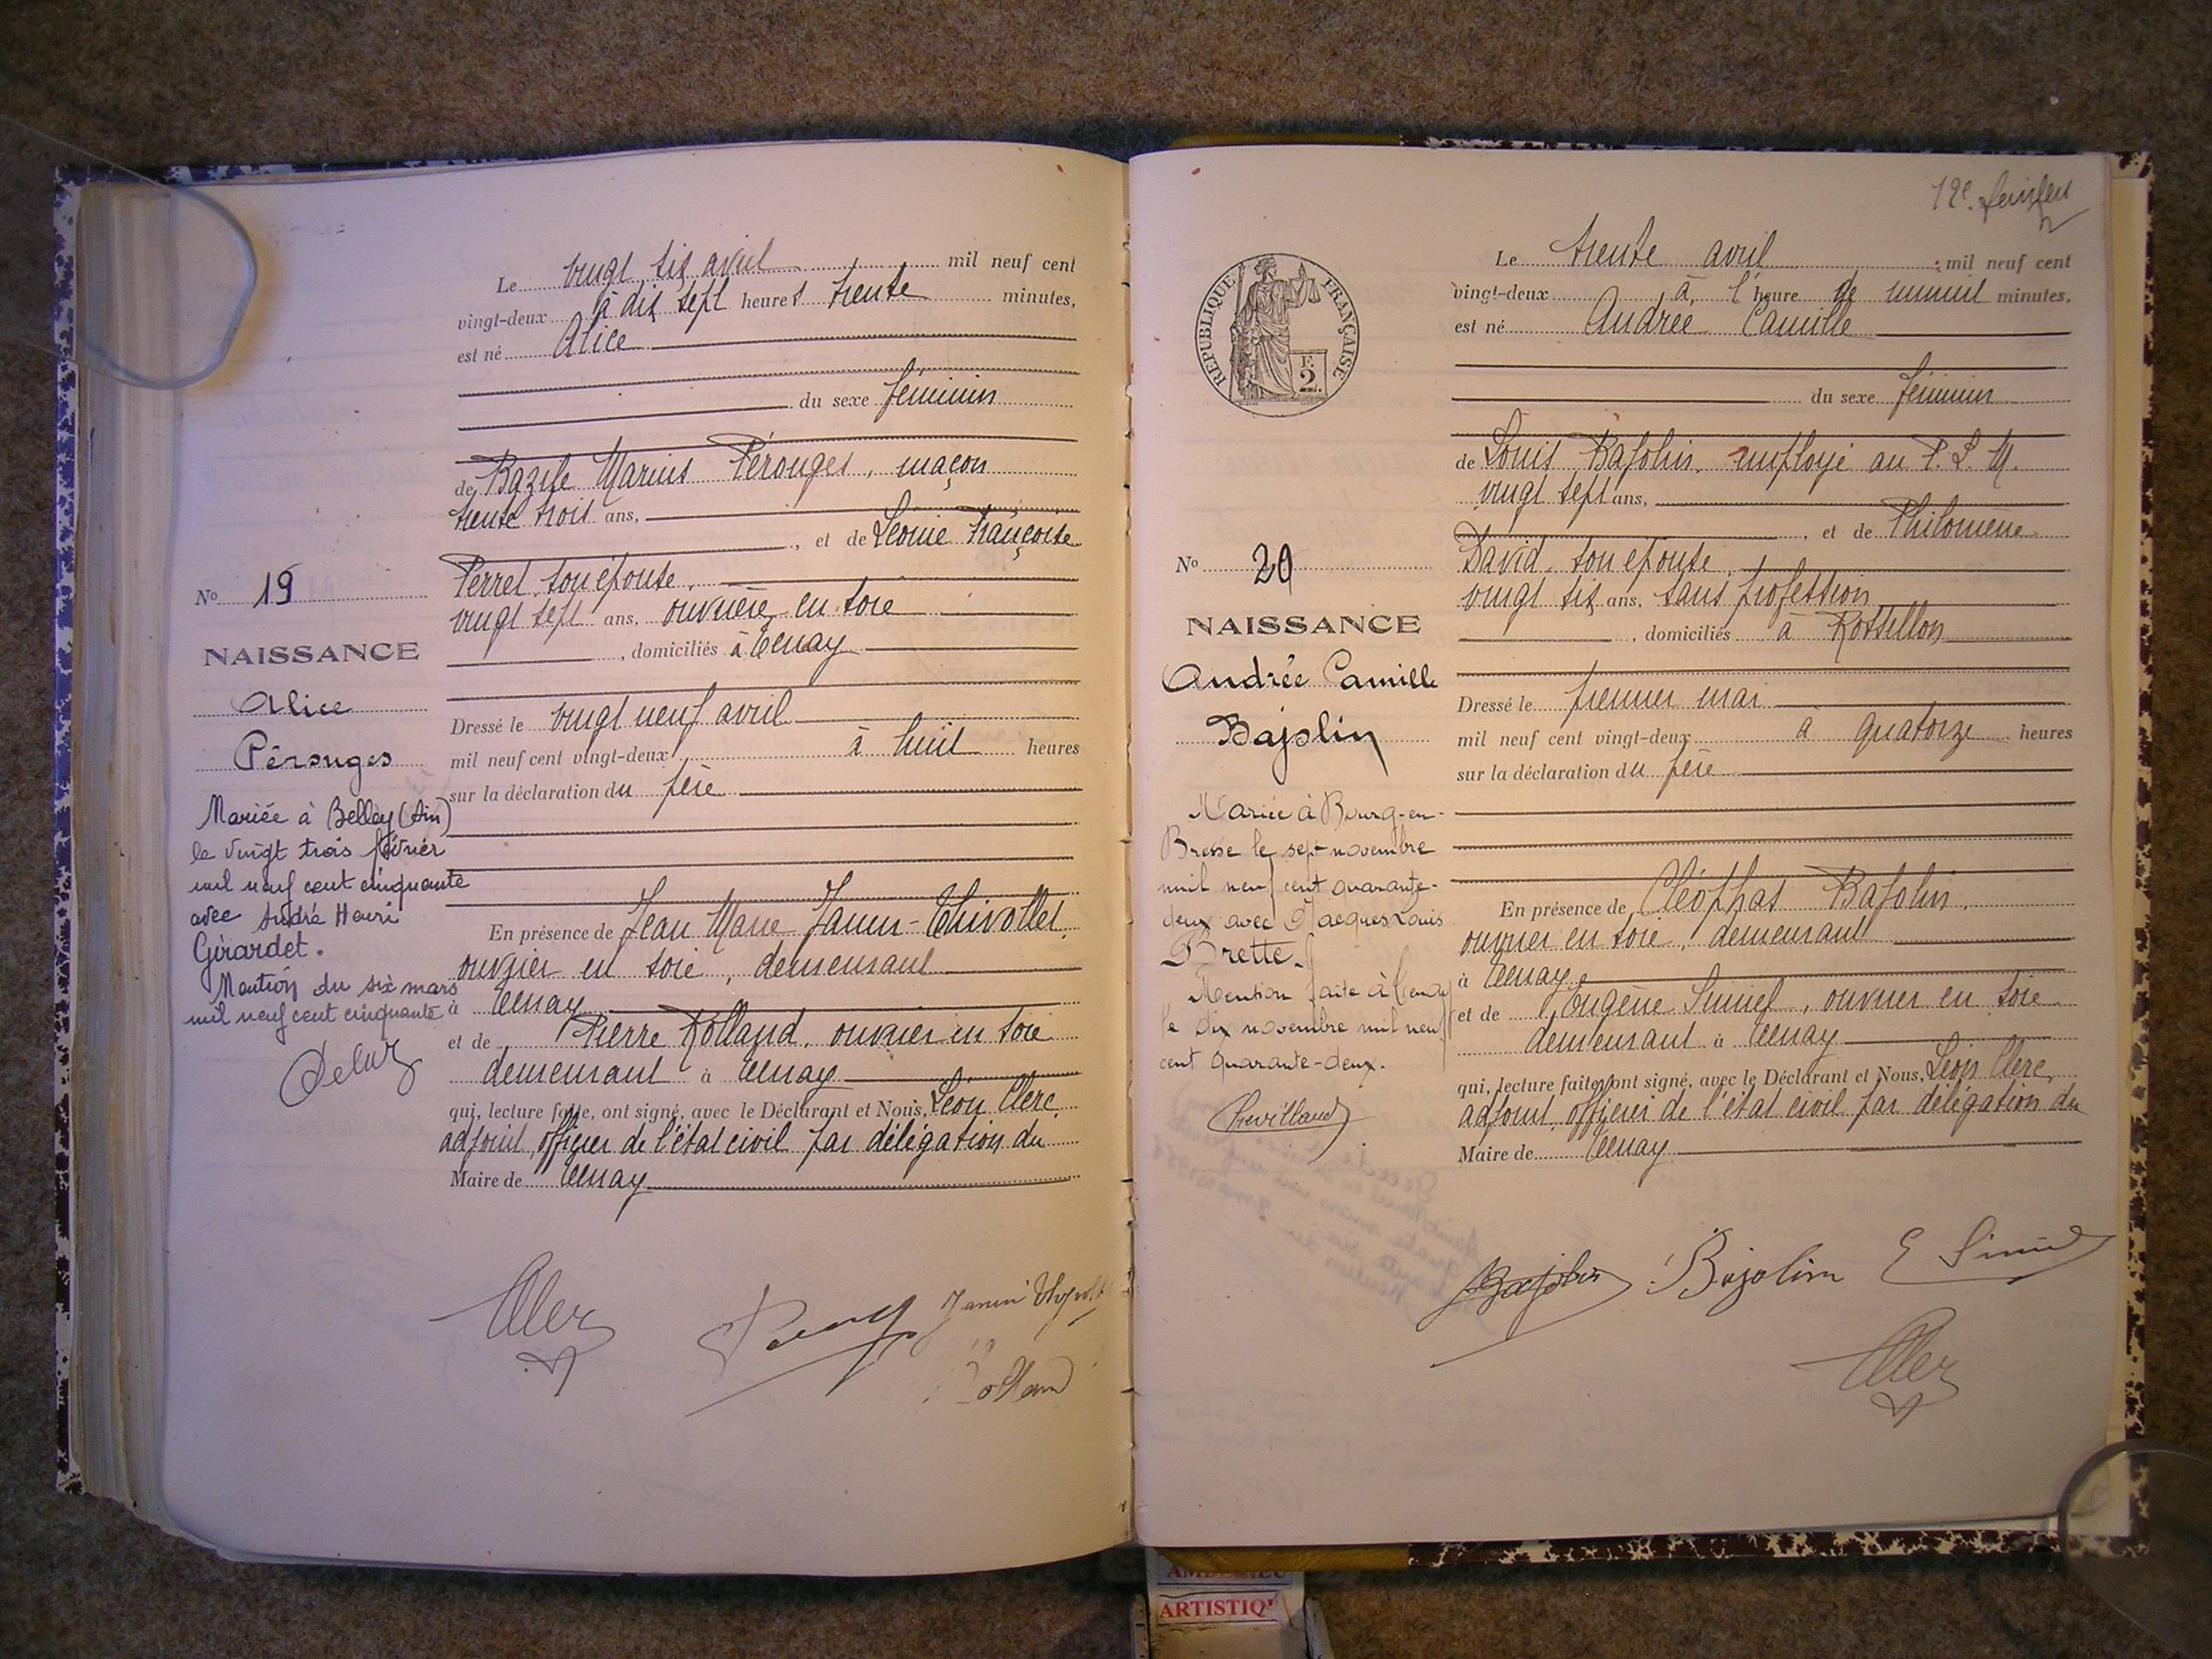 Le vingt six avril mil neuf cent
vingt-deux à dix sept heures trente minutes,
est né Alice
du sexe féminin
de Bazile Marius Pérouges, maçon
trente trois ans,
, et de Léonie Françoise
Perret, son épouse,
vingt sept ans, ouvrière en soie
, domiciliés à Tenay
Dressé le vingt neuf avril
mil neuf cent vingt-deux à huit heures
sur la déclaration du père
En présence de Jean Marie Janin-Thivollet,
ouvrier en soie, demeurant
à Tenay
et de Pierre Rolland, ouvrier en soie
demeurant à Tenay
qui, lecture faite, ont signé, avec le Déclarant et Nous, Léon Clerc,
adjoint, officier de l'état civil par délégation du
Maire de Tenay
No 19
NAISSANCE
Alice
Pérouges
Mariée à Belley (Ain)
le vingt trois février
mil neuf cent cinquante
avec André Henri
Girardet.
Mention du six mars
mil neuf cent cinquante
Janin Thivollet
Rolland
12e feuillet
REPUBLIQUE FRANÇAISE
F.
2
Le trente avril mil neuf cent
vingt-deux à l'heure de minuit minutes,
est né Andrée Camille
du sexe féminin
de Louis Bajolin, employé au P. L. M.
vingt sept ans,
, et de Philomène
David, son épouse,
vingt six ans, sans profession
, domiciliés à Rossillon
Dressé le premier mai
mil neuf cent vingt-deux à quatorze heures
sur la déclaration du père
En présence de Cléophas Bajolin,
ouvrier en soie, demeurant
à Tenay
et de Eugène , ouvrier en soie
demeurant à Tenay
qui, lecture faite, ont signé, avec le Déclarant et Nous, Léon Clerc,
adjoint, officier de l'état civil par délégation du
Maire de Tenay
No 20
NAISSANCE
Andrée Camille
Bajolin
Mariée à Bourg-en-
Bresse le sept novembre
mil neuf cent quarante-
deux avec Jacques Louis
Brette.
Mention faite à Tenay
le dix novembre mil neuf
cent quarante-deux.
Bajolin Bajolin
ARTISTIQ